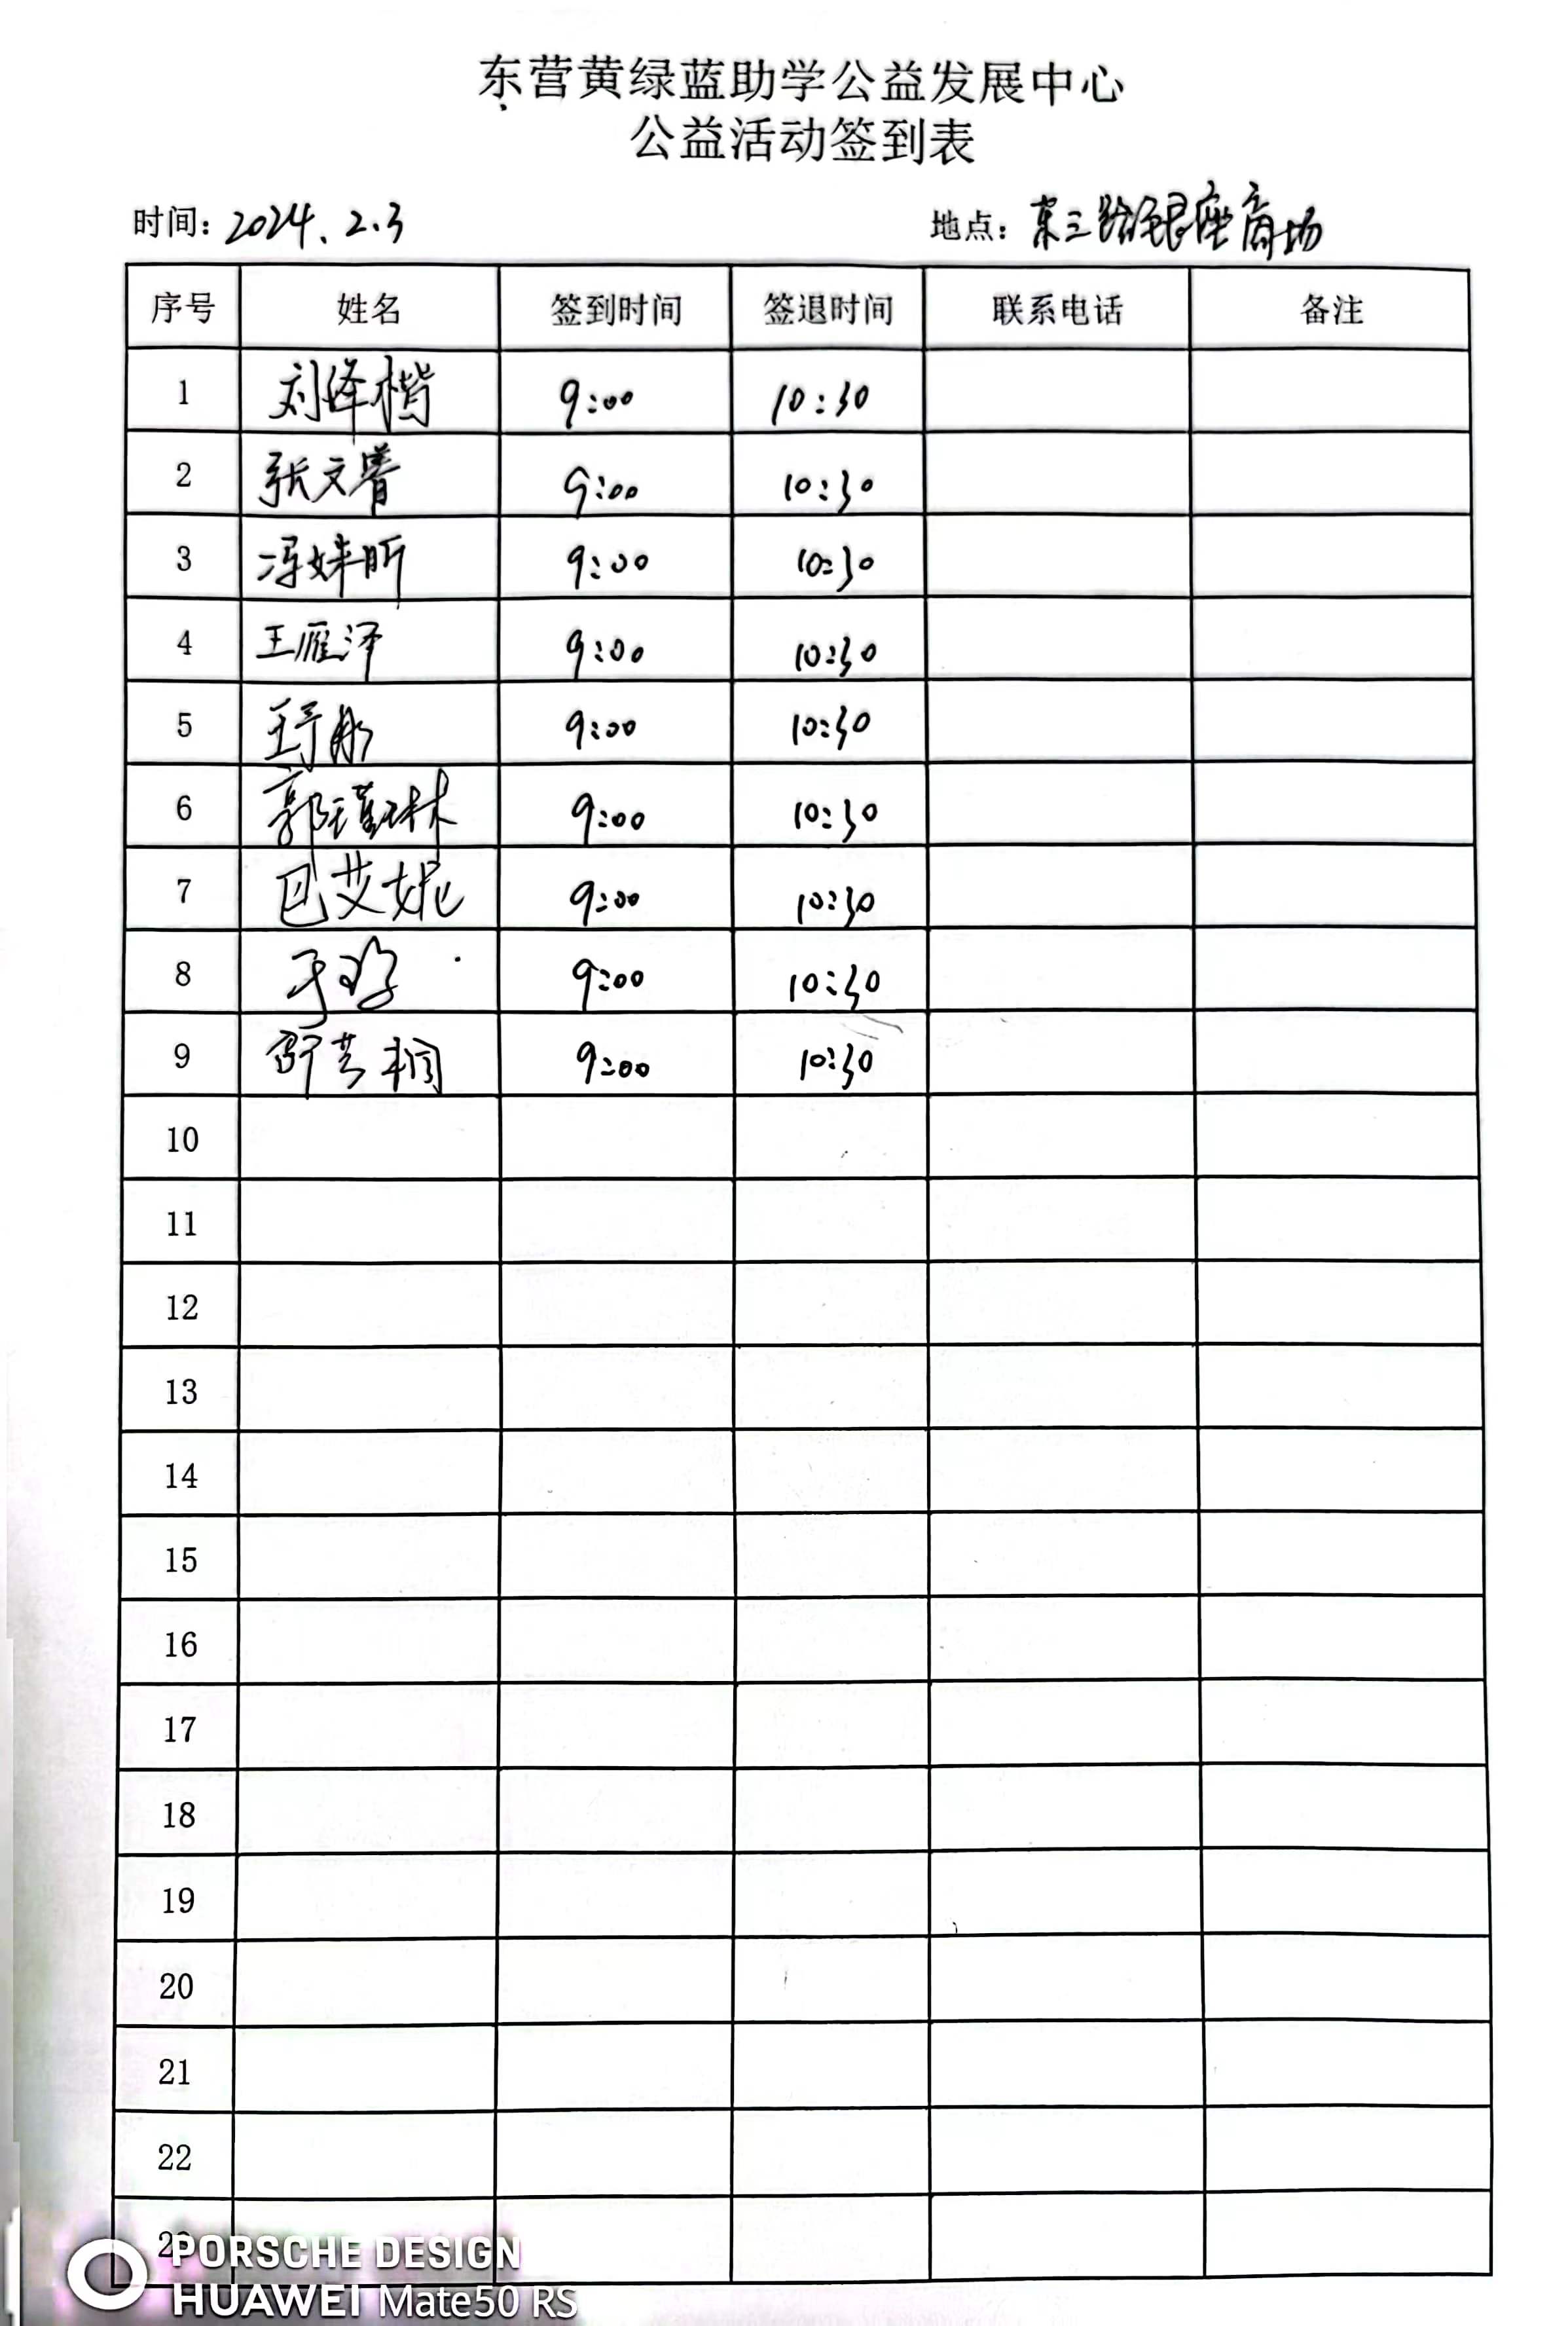 东营黄绿蓝助学公益发展中心
公益活动签到表
时间: 2024.2.3 地点: 东三路银座商场
序号 姓名 签到时间 签退时间 联系电话 备注
1 刘泽楷 9:00 10:30
2 张文睿 9:00 10:30
3 冯姝昕 9:00 10:30
4 王雁泽 9:00 10:30
5 9:00 10:30
6 郭瑾琳 9:00 10:30
7 巴艾妮 9:00 10:30
8 9:00 10:30
9 9:00 10:30
10
11
12
13
14
15
16
17
18
19
20
21
22
PORSCHE DESIGN
HUAWEI Mate50 RS